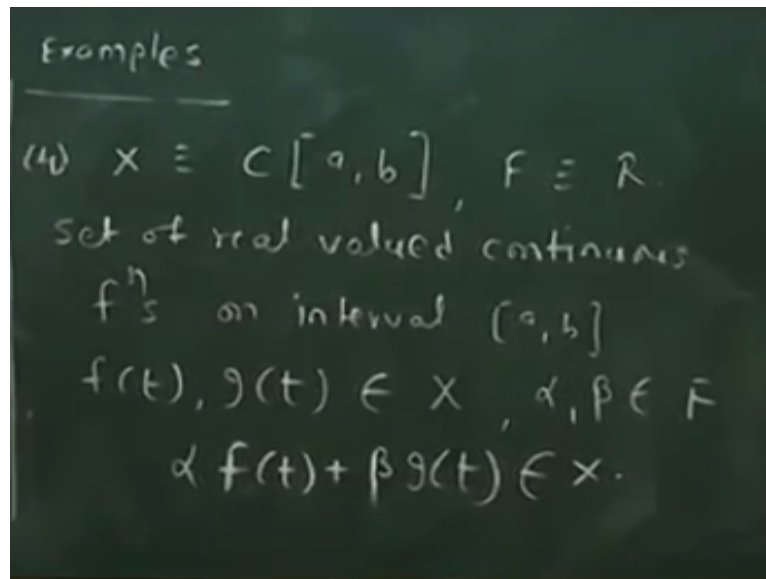 Examples
(4) X ≡ C[a,b], F ≡ R.
set of real valued continuous
fⁿs on interval [a,b]
f(t), g(t) ∈ X, α, β ∈ F
α f(t) + β g(t) ∈ X.